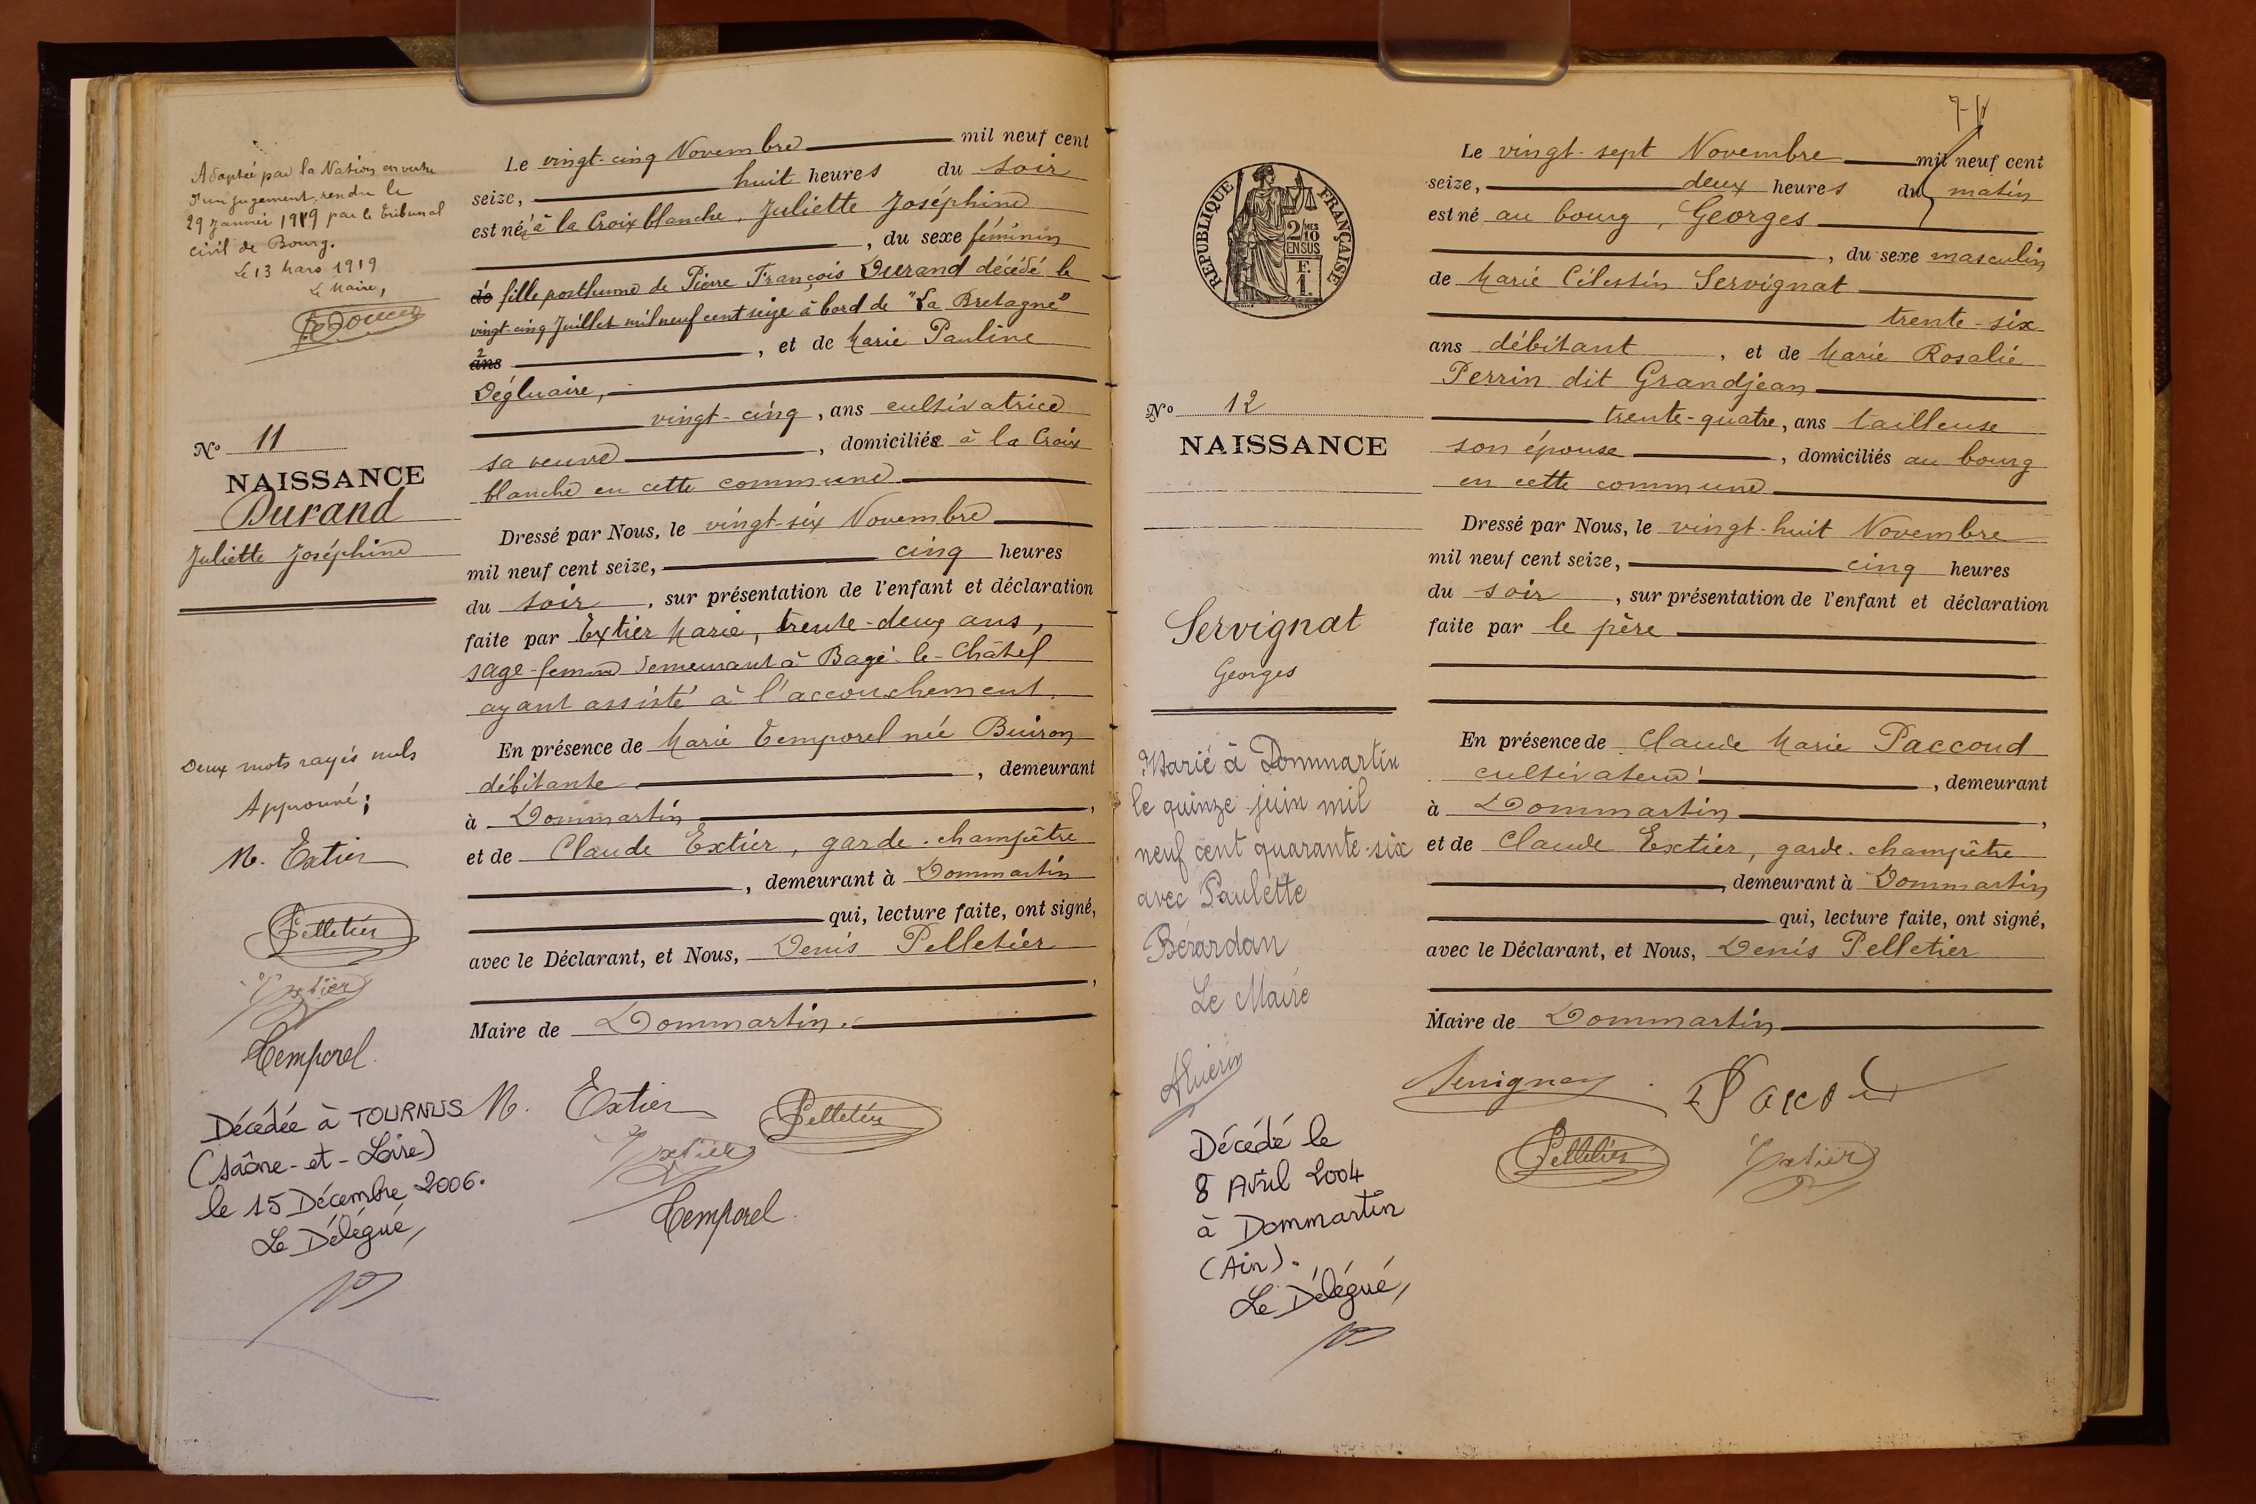 Adoptée par la Nation en vertu
d'un jugement rendu le
29 Janvier 1919 par le tribunal
civil de Bourg.
Le 13 Mars 1919
Le Maire,
No 11
NAISSANCE
Durand
Juliette Joséphine
Deux mots rayés nuls
Approuvé;
M. Extier
Pelletier
Extier
Temporel
Décédée à TOURNUS
(Saône-et-Loire)
le 15 Décembre 2006.
Le Délégué,
Le vingt-cinq Novembre mil neuf cent
seize, huit heures du soir
est née à la Croix blanche, Juliette Joséphine
, du sexe féminin
de fille posthume de Pierre François Durand décédé le
vingt-cinq Juillet mil neuf cent seize à bord de "La Bretagne"
ans , et de Marie Pauline
Dégluaire,
vingt-cinq, ans cultivatrice
sa veuve , domiciliée à la Croix
blanche en cette commune
Dressé par Nous, le vingt-six Novembre
mil neuf cent seize, cinq heures
du soir , sur présentation de l'enfant et déclaration
faite par Extier Marie, trente-deux ans,
sage-femme demeurant à Bagé-le-Châtel
ayant assisté à l'accouchement.
En présence de Marie Temporel née Buiron
débitante , demeurant
à Dommartin ,
et de Claude Extier, garde-champêtre
, demeurant à Dommartin
qui, lecture faite, ont signé,
avec le Déclarant, et Nous, Denis Pelletier
,
Maire de Dommartin.
M. Extier Pelletier
Extier
Temporel
RÉPUBLIQUE FRANÇAISE
2/10
MES
EN SUS
F.
1.
No 12
NAISSANCE
Servignat
Georges
Marié à Dommartin
le quinze juin mil
neuf cent quarante-six
avec Paulette
Bérardan
Le Maire
Décédé le
8 Avril 2004
à Dommartin
(Ain).
Le Délégué,
Le vingt-sept Novembre mil neuf cent
seize, deux heures du matin
est né au bourg, Georges
, du sexe masculin
de Marie Célestin Servignat
trente-six
ans débitant , et de Marie Rosalie
Perrin dit Grandjean
trente-quatre, ans tailleuse
son épouse , domiciliés au bourg
en cette commune
Dressé par Nous, le vingt-huit Novembre
mil neuf cent seize, cinq heures
du soir , sur présentation de l'enfant et déclaration
faite par le père
En présence de Claude Marie Paccoud
cultivateur , demeurant
à Dommartin ,
et de Claude Extier, garde-champêtre
, demeurant à Dommartin
qui, lecture faite, ont signé,
avec le Déclarant, et Nous, Denis Pelletier
Maire de Dommartin
Servignat Paccoud
Pelletier Extier